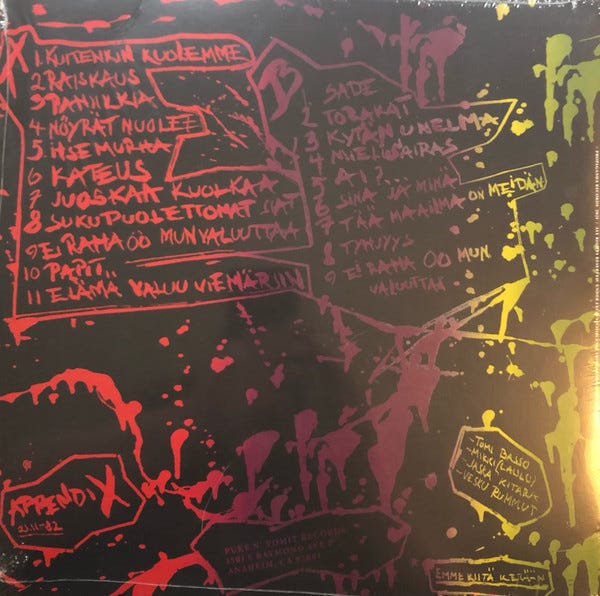 1. KUITENKIN KUOLEMME
2 RAISKAUS
3 PANIIKKIA
4 NÖYRÄT NUOLEE
5 ITSEMURHA
6 KATEUS
7 JUOSKAA KUOLKAA
8 SUKUPUOLETTOMAT SIAT
9 EI RAHA OO MUN VALUUTTAA
10 PAPIT..
11 ELÄMÄ VALUU VIEMÄRIIN
B
1 SADE
2 TORAKAT
3 KYTÄN UNELMA
4 MIELISAIRAS
5 AI?...
6 SINÄ JA MINÄ
7 TÄÄ MAAILMA ON MEIDÄN
8 TYHJYYS
9 EI RAHA OO MUN
VALUUTTAA
APPENDIX
23.11-82
PUKE N' VOMIT RECORDS
RAYMOND AVE
ANAHEIM, CA
-TOMI BASSO
-MIKKI (LAULU)
-JASKA KITARA
-VESKU RUMMUT
EMME KIITÄ KETÄÄN